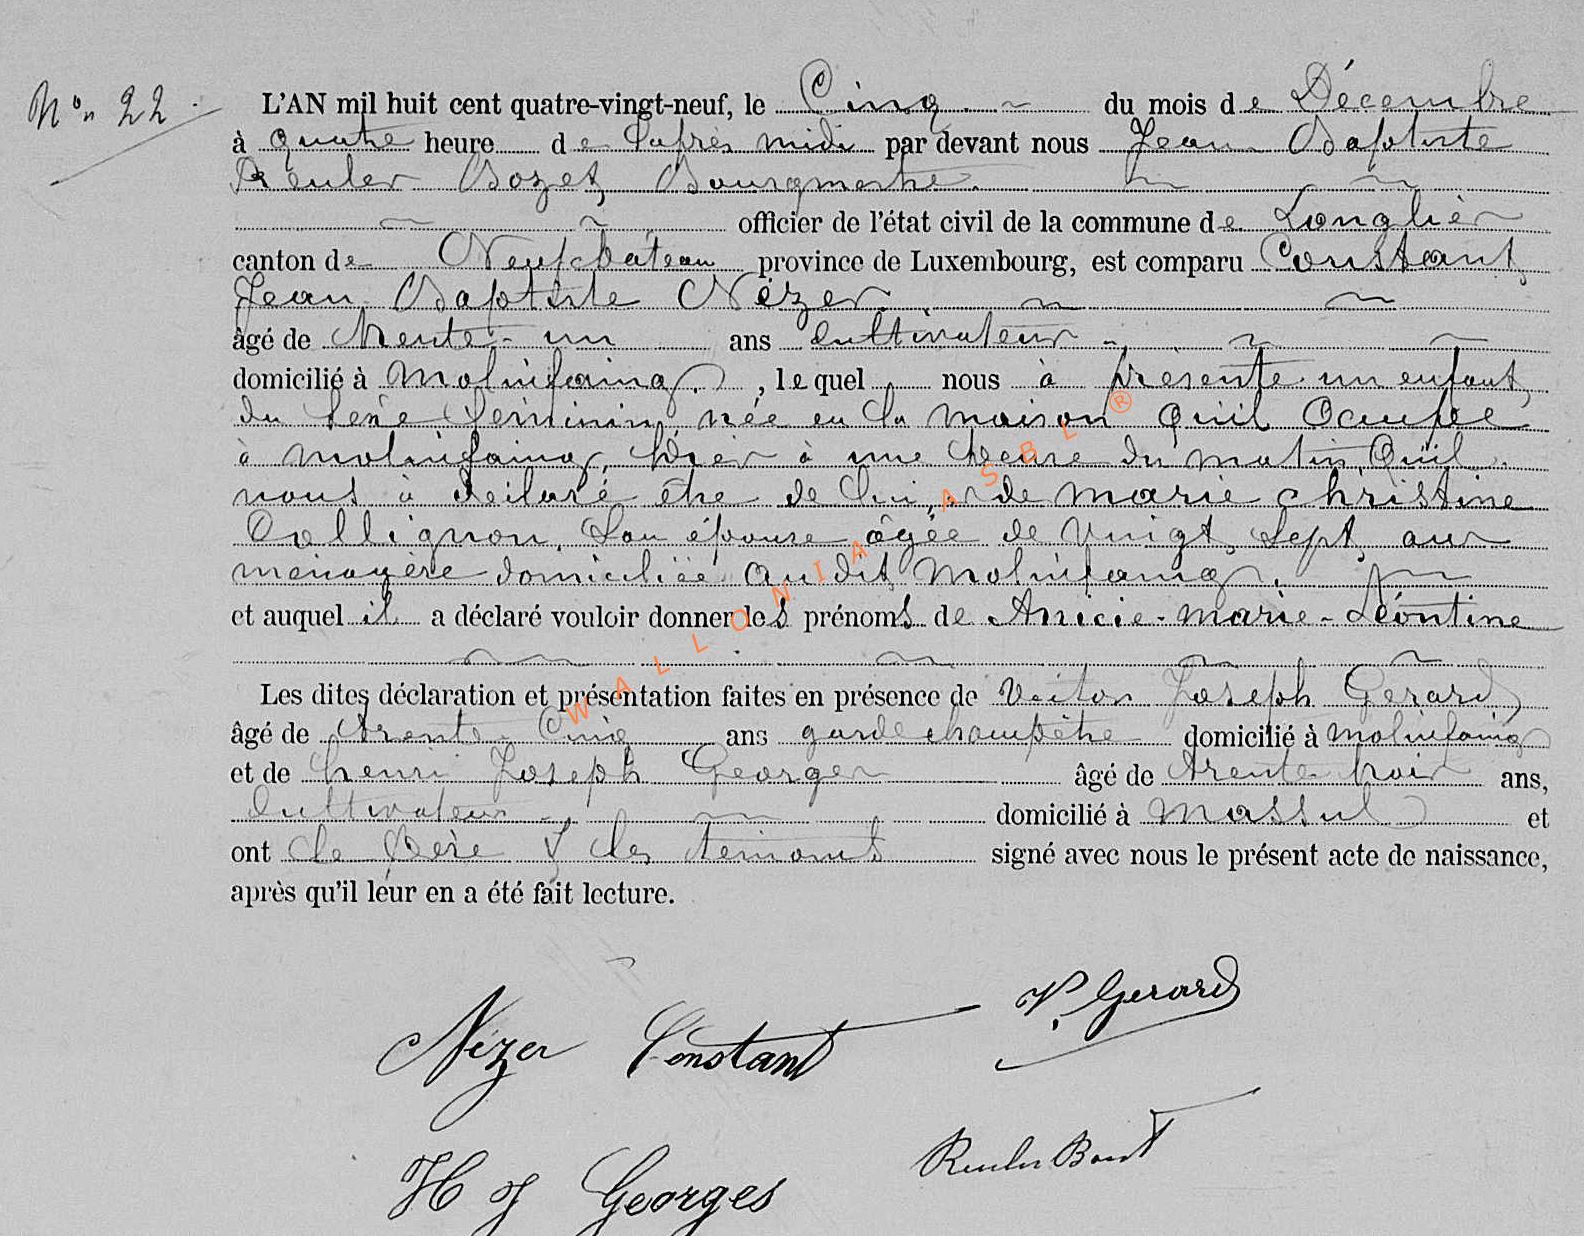 N° 22.
L'AN mil huit cent quatre-vingt-neuf, le Cinq du mois de Décembre
à quatre heure de l'après midi par devant nous Jean Baptiste
Reuler Bozet, Bourgmestre.
officier de l'état civil de la commune de Longlier
canton de Neufchâteau province de Luxembourg, est comparu Constant,
Jean Baptiste Nézer,
âgé de trente-un ans Cultivateur
domicilié à Molinfaing, lequel nous à présente un enfant,
du sexe féminin, née en la maison qu'il Ocupée
à Molinfaing, hier à une heure du matin, Qu'il
nous à déclaré être de lui, de marie christine
Collignon, Son épouse âgée de Vingt, Sept, ans
ménagère domiciliée au dit Molinfaing.
et auquel il a déclaré vouloir donner les prénoms de Amicie-marie-Léontine
Les dites déclaration et présentation faites en présence de Victor Joseph Gerard,
âgé de trente Cinq ans gardechampêtre domicilié à molinfaing
et de henri Joseph Georges âgé de trente trois ans,
Cultivateur domicilié à massul et
ont le Père & les témoins signé avec nous le présent acte de naissance,
après qu'il leur en a été fait lecture.
WALLONIA ASBL ®
V. Gerard
Nézer Constant
Reuler Bozet
H J Georges